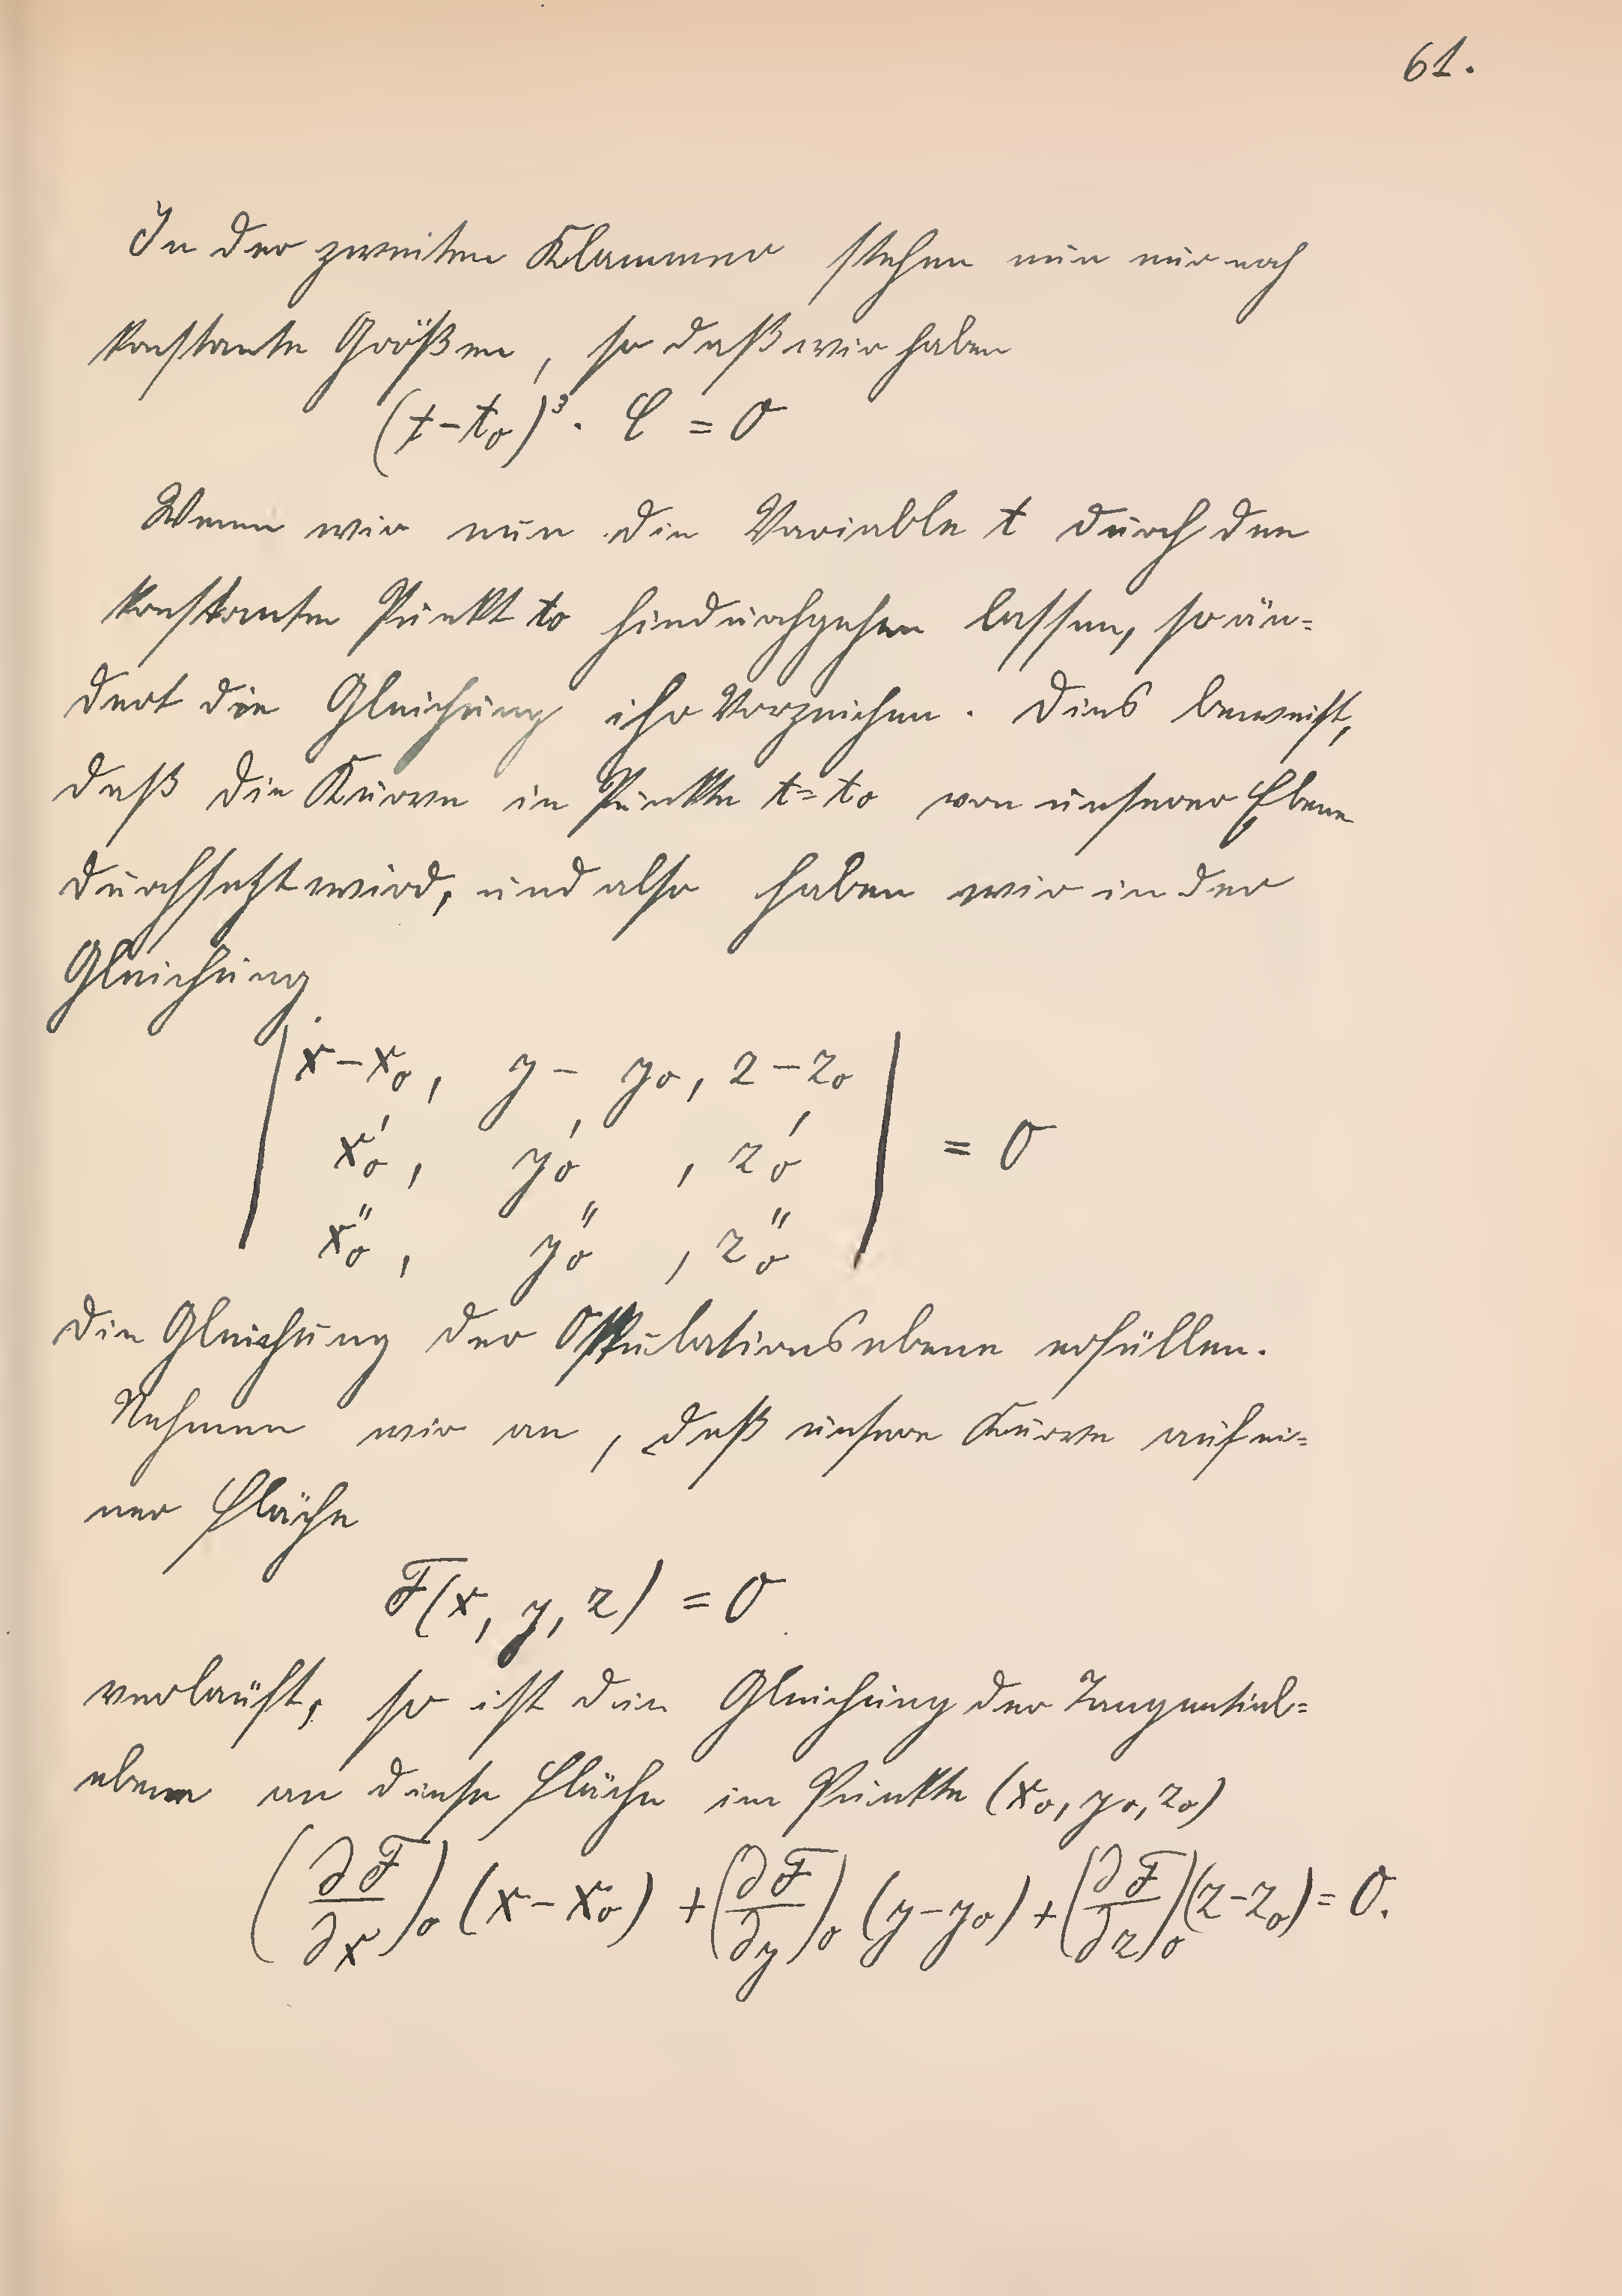 61.
In der zweiten Klammer stehen nun nur noch
konstante Größen, so daß wir haben
(t-t₀)³ · C = 0
Wenn wir nun die Variable t durch den
konstanten Punkt t₀ hindurchgehen lassen, so än=
dert die Gleichung ihr Vorzeichen. Dies beweist,
daß die Kurve in Punkte t=t₀ von unserer Ebene
durchsetzt wird, und also haben wir in der
Gleichung
| x-x₀, y-y₀, z-z₀ |
| x₀', y₀', z₀' | = 0
| x₀'', y₀'', z₀'' |
die Gleichung der Oskulationsebene erfüllen.
Nehmen wir an, daß unsere Kurve auf ei=
ner Fläche
F(x, y, z) = 0
verläuft, so ist die Gleichung der Tangential=
ebene an diese Fläche im Punkte (x₀, y₀, z₀)
(∂F/∂x)₀ (x-x₀) + (∂F/∂y)₀ (y-y₀) + (∂F/∂z)₀ (z-z₀) = 0.